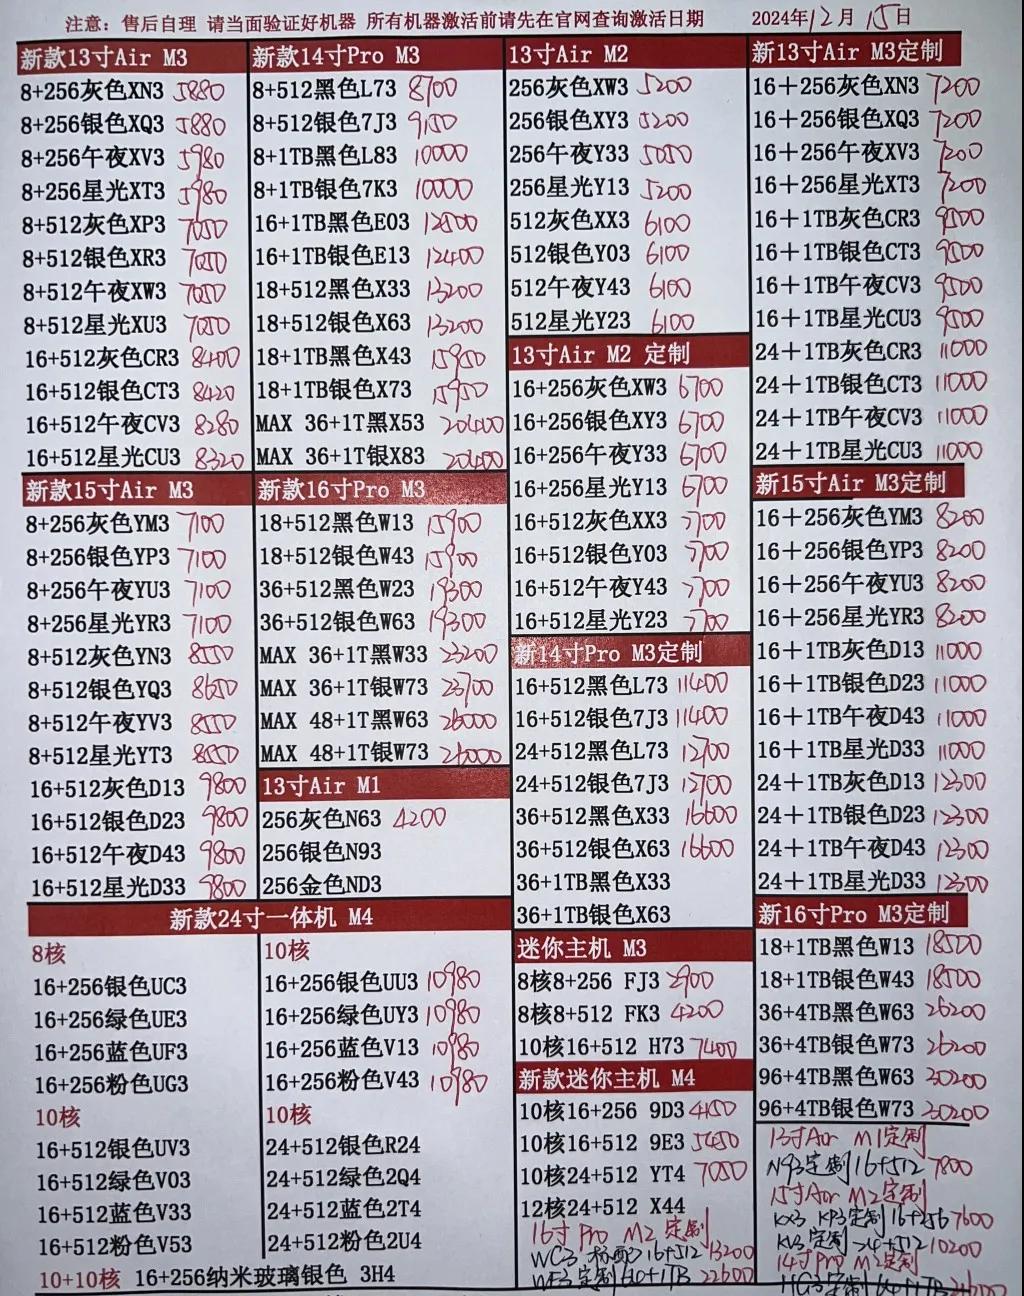 注意: 售后自理 请当面验证好机器 所有机器激活前请先在官网查询激活日期 2024年12月15日
新款13寸Air M3
8+256灰色XN3 5880
8+256银色XQ3 5880
8+256午夜XV3 5980
8+256星光XT3 5980
8+512灰色XP3 7050
8+512银色XR3 7050
8+512午夜XW3 7050
8+512星光XU3 7050
16+512灰色CR3 8400
16+512银色CT3 8420
16+512午夜CV3 8280
16+512星光CU3 8320
新款15寸Air M3
8+256灰色YM3 7100
8+256银色YP3 7100
8+256午夜YU3 7100
8+256星光YR3 7100
8+512灰色YN3 8550
8+512银色YQ3 8650
8+512午夜YV3 8550
8+512星光YT3 8550
16+512灰色D13 9800
16+512银色D23 9800
16+512午夜D43 9800
16+512星光D33 9800
新款14寸Pro M3
8+512黑色L73 8700
8+512银色7J3 9150
8+1TB黑色L83 10000
8+1TB银色7K3 10000
16+1TB黑色E03 12500
16+1TB银色E13 12400
18+512黑色X33 13200
18+512银色X63 13200
18+1TB黑色X43 15950
18+1TB银色X73 15950
MAX 36+1T黑X53 20400
MAX 36+1T银X83 20400
新款16寸Pro M3
18+512黑色W13 15900
18+512银色W43 15900
36+512黑色W23 19300
36+512银色W63 19300
MAX 36+1T黑W33 23200
MAX 36+1T银W73 23700
MAX 48+1T黑W63 26000
MAX 48+1T银W73
13寸Air M1
256灰色N63 4200
256银色N93
256金色ND3
新款24寸一体机 M4
8核
16+256银色UC3
16+256绿色UE3
16+256蓝色UF3
16+256粉色UG3
10核
16+512银色UV3
16+512绿色V03
16+512蓝色V33
16+512粉色V53
10核
16+256银色UU3 10980
16+256绿色UY3 10980
16+256蓝色V13 10980
16+256粉色V43 10980
10核
24+512银色R24
24+512绿色2Q4
24+512蓝色2T4
24+512粉色2U4
10+10核 16+256纳米玻璃银色 3H4
13寸Air M2
256灰色XW3 5200
256银色XY3 5200
256午夜Y33 5050
256星光Y13 5200
512灰色XX3 6100
512银色Y03 6100
512午夜Y43 6100
512星光Y23 6100
13寸Air M2 定制
16+256灰色XW3 6700
16+256银色XY3 6700
16+256午夜Y33 6700
16+256星光Y13 6700
16+512灰色XX3 7700
16+512银色Y03 7700
16+512午夜Y43 7700
16+512星光Y23 7700
新14寸Pro M3定制
16+512黑色L73 11400
16+512银色7J3 11400
24+512黑色L73 12700
24+512银色7J3 12700
36+512黑色X33 16600
36+512银色X63 16600
36+1TB黑色X33
36+1TB银色X63
迷你主机 M3
8核8+256 FJ3 2900
8核8+512 FK3 4200
10核16+512 H73 7400
新款迷你主机 M4
10核16+256 9D3 4150
10核16+512 9E3 5450
10核24+512 YT4 7050
12核24+512 X44
16寸 Pro M2 定制
WC3 标配 16+512 13200
WF3定制 64+1TB 22600
新13寸Air M3定制
16+256灰色XN3 7200
16+256银色XQ3 7200
16+256午夜XV3 7200
16+256星光XT3 7200
16+1TB灰色CR3 9500
16+1TB银色CT3 9500
16+1TB午夜CV3 9500
16+1TB星光CU3 9500
24+1TB灰色CR3 11000
24+1TB银色CT3 11000
24+1TB午夜CV3 11000
24+1TB星光CU3 11000
新15寸Air M3定制
16+256灰色YM3 8200
16+256银色YP3 8200
16+256午夜YU3 8200
16+256星光YR3 8200
16+1TB灰色D13 11000
16+1TB银色D23 11000
16+1TB午夜D43 11000
16+1TB星光D33 11000
24+1TB灰色D13 12300
24+1TB银色D23 12300
24+1TB午夜D43 12300
24+1TB星光D33 12300
新16寸Pro M3定制
18+1TB黑色W13 18500
18+1TB银色W43 18500
36+4TB黑色W63 26200
36+4TB银色W73 26200
96+4TB黑色W63 30200
96+4TB银色W73 30200
13寸Air M1定制
N93定制 16+512 7800
15寸Air M2定制
KX3 KP3定制 16+256 7600
KV3 定制 24+512 10200
14寸Pro M2定制
HG3定制 64+1TB